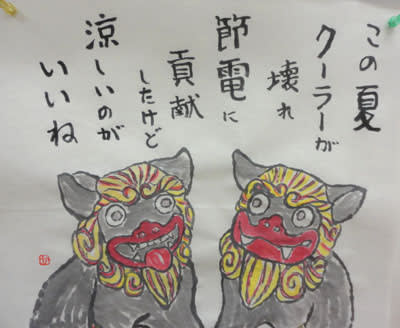 この夏
クーラーが
壊れ
節電に
貢献
したけど
涼しいのが
いいね